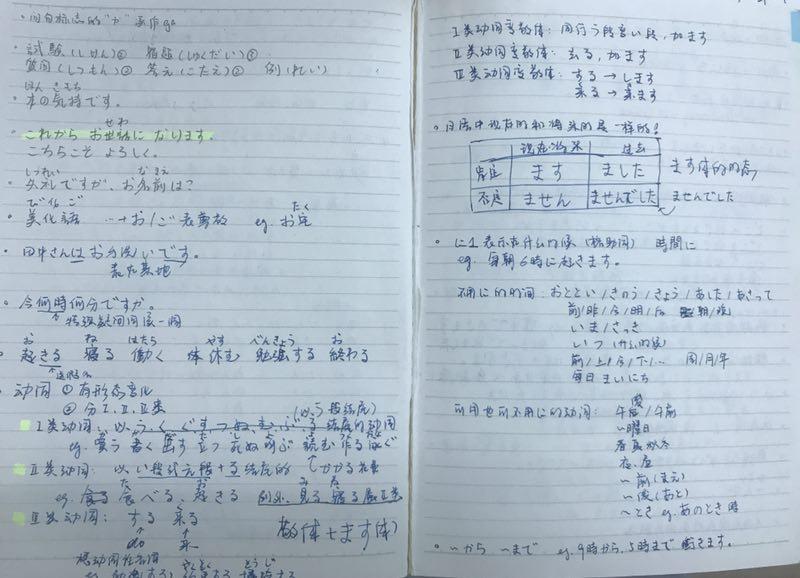 试験(しけん) 宿題(しゅくだい)
質問(しつもん)② 答え(こたえ)② 例(れい)
ほん きもち
本の気持です。
せわ
これから お世話になります。
こちらこそ よろしく。
しつれい なまえ
失礼ですが、お名前は?
びかご たく
美化語 →お/ご表尊敬 eg. お宅
田中さんはお手洗いです。
今何時何分ですか。
特殊疑问词
お ね はたら やす べんきょう お
起きる 寝る 働く 休む 勉強する 終わる
动词 ① 有形态变化
② 分Ⅰ、Ⅱ、Ⅲ类 (以う段结尾)
Ⅰ类动词:以う、く、ぐ、す、つ、ぬ、む、ぶ、る 结尾的动词
eg. 買う 書く 出す 立つ 死ぬ 呼ぶ 読む 作る
Ⅱ类动词: 以い段或え段+る结尾的
た お み ね
eg. 食べる、起きる 例外:見る 寝る属Ⅱ类
Ⅲ类动词: する 来る
do 来
敬体+ます体)
Ⅰ类动词变敬体: 词行う段变い段,加ます
Ⅱ类动词变敬体: 去る,加ます
Ⅲ类动词变敬体: する→します
来る→来ます
日语中现在的和将来的是一样的!
现在/将来 过去
肯定 ます ました ます体的时态
否定 ません ませんでした ませんでした
に1 表示在什么时候(接动词) 時間に
eg. 每朝6時に起きます。
不用に的时间: おととい/きのう/きょう/あした/あさって
前/昨/今/明/后 朝/晚
いま/さっき
いつ(什么时候)
前/上/今/下/… 周/月/年
每日 まいにち
可用也可不用に的动词:
午後/午前
～曜日
春夏秋冬
夜、昼
～前(まえ)
～後(あと)
～とき eg. あのとき 時
～から ～まで eg. 9時から、5時まで働きます。